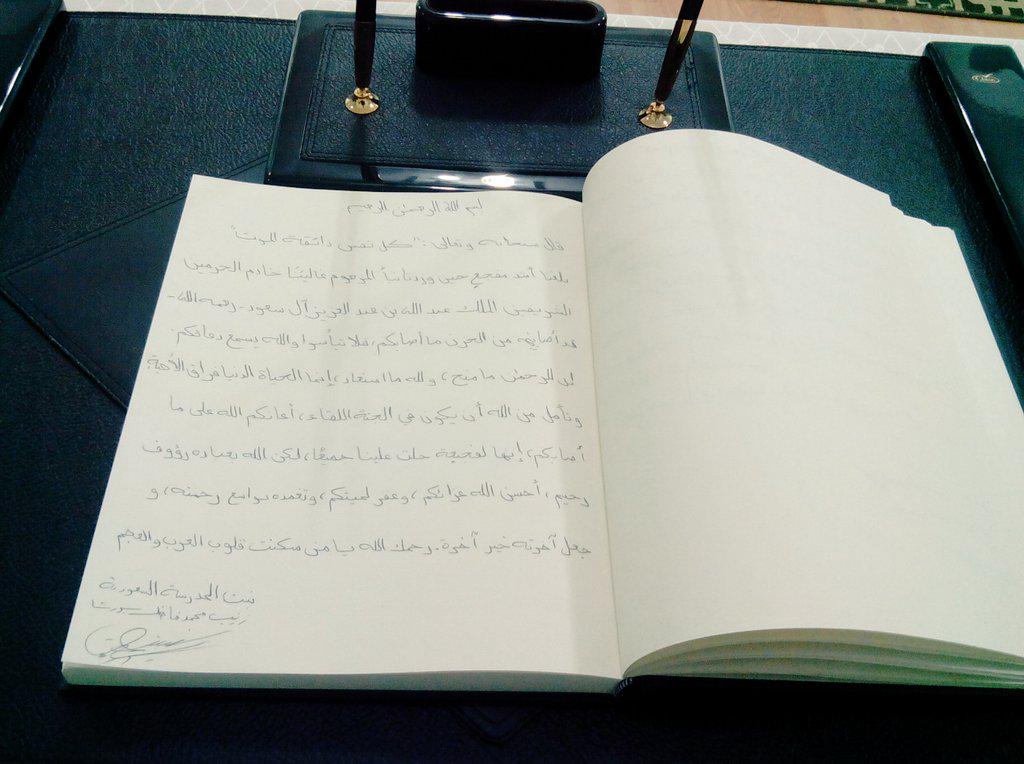 بسم الله الرحمن الرحيم
قال سبحانه وتعالى: "كل نفس ذائقة الموت"
بلغنا أشد مفجع حين وردنا نبأ المرحوم غالينا خادم الحرمين
الشريفين الملك عبد الله بن عبد العزيز آل سعود - رحمه الله -
قد أصابني من الحزن ما أصابكم، فلا تيأسوا والله يسمع دعائكم.
إن للرحمن ما منح، ولله ما استعاد، إنما الحياة الدنيا فراق الأحبة
ونأمل من الله أن يكون في الجنة اللقاء، أعانكم الله على ما
أصابكم، إنها لفجيعة حلت علينا جميعًا، لكن الله بعباده رؤوف
رحيم، أحسن الله عزائكم، وغفر لميتكم، وتغمده بواسع رحمته، و
جعل آخرته خير آخرة. رحمك الله يا من سكنت قلوب العرب والعجم
بنت المدرسة السعودية
زينب محمد